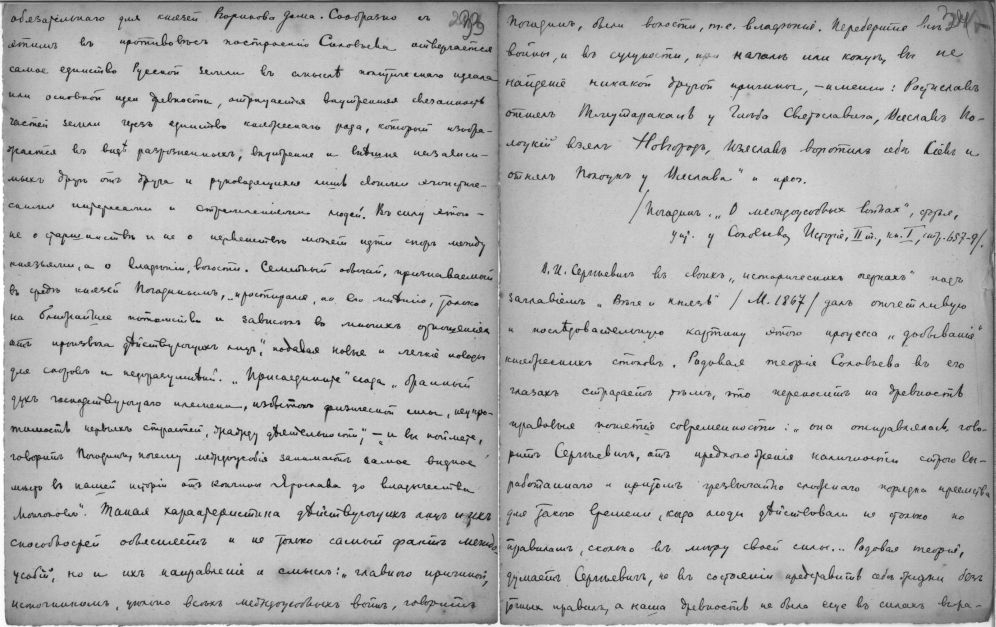 обязательнаго для князей Рюрикова дома. Сообразно съ
этимъ въ противовѣсъ построенію Соловьева отвергается
самое единство Русской земли въ смыслѣ политическаго идеала
или основной идеи древности, отрицается внутренняя связанность
частей земли черезъ единство княжескаго рода, который изобра-
жается въ видѣ разрозненныхъ, внутренне и внѣшне независи-
мыхъ другъ отъ друга и руководящихся лишь своими эгоистиче-
скими интересами и стремленіями людей. Въ силу этого —
не о старшинствѣ и не о первенствѣ можетъ идти споръ между
князьями, а о владѣніи, волости. Семейный обычай, признаваемый
въ средѣ князей Погодинымъ, „простирался, по его мнѣнію, только
на ближайшее потомство и зависѣлъ во многихъ отношеніяхъ
отъ произвола дѣйствующихъ лицъ", подавая новые и легкіе поводы
для споровъ и недоразумѣній. „Присоедините" сюда „бранный
духъ господствующаго племени, избытокъ физической силы, неукро-
тимость первыхъ страстей, жажду дѣятельности", — и вы поймете,
говоритъ Погодинъ, почему междоусобія занимаютъ самое видное
мѣсто въ нашей исторіи отъ кончины Ярослава до владычества
Монголовъ". Такая характеристика дѣйствующихъ лицъ и ихъ
способностей объясняетъ и не только самый фактъ междо-
усобій, но и ихъ направленіе и смыслъ: „главною причиною,
источникомъ, цѣлью всѣхъ междоусобныхъ войнъ, говоритъ
Погодинъ, были волости, т.е. владѣнія. Переберите всѣ
войны, и въ сущности, при началѣ или концѣ, вы не
найдете никакой другой причины, — именно: Ростиславъ
отнялъ Тмутаракань у Глѣба Святославича, Всеславъ По-
лоцкій взялъ Новгородъ, Изяславъ воротилъ себѣ Кіевъ и
отнялъ Полоцкъ у Всеслава" и проч.
/Погодинъ. „О междоусобныхъ войнахъ",
у Соловьева, Исторія, II т., кн. I, стр. 657-9/.
В. И. Сергѣевичъ въ своихъ „историческихъ очеркахъ" подъ
заглавіемъ „Вѣче и князь" /М. 1867/ далъ отчетливую
и послѣдовательную картину этого процесса „добыванія"
княжескихъ столовъ. Родовая теорія Соловьева въ его
глазахъ страдаетъ тѣмъ, что переноситъ на древность
правовыя понятія современности: „она отправлялась, гово-
ритъ Сергѣевичъ, отъ предположенія наличности строго вы-
работаннаго и притомъ чрезвычайно сложнаго порядка преемства
для такого времени, когда люди дѣйствовали не столько по
правиламъ, сколько въ мѣру своей силы... Родовая теорія,
думаетъ Сергѣевичъ, не въ состояніи представить себѣ жизни безъ
точныхъ правилъ, а наша древность не была еще въ силахъ выра-